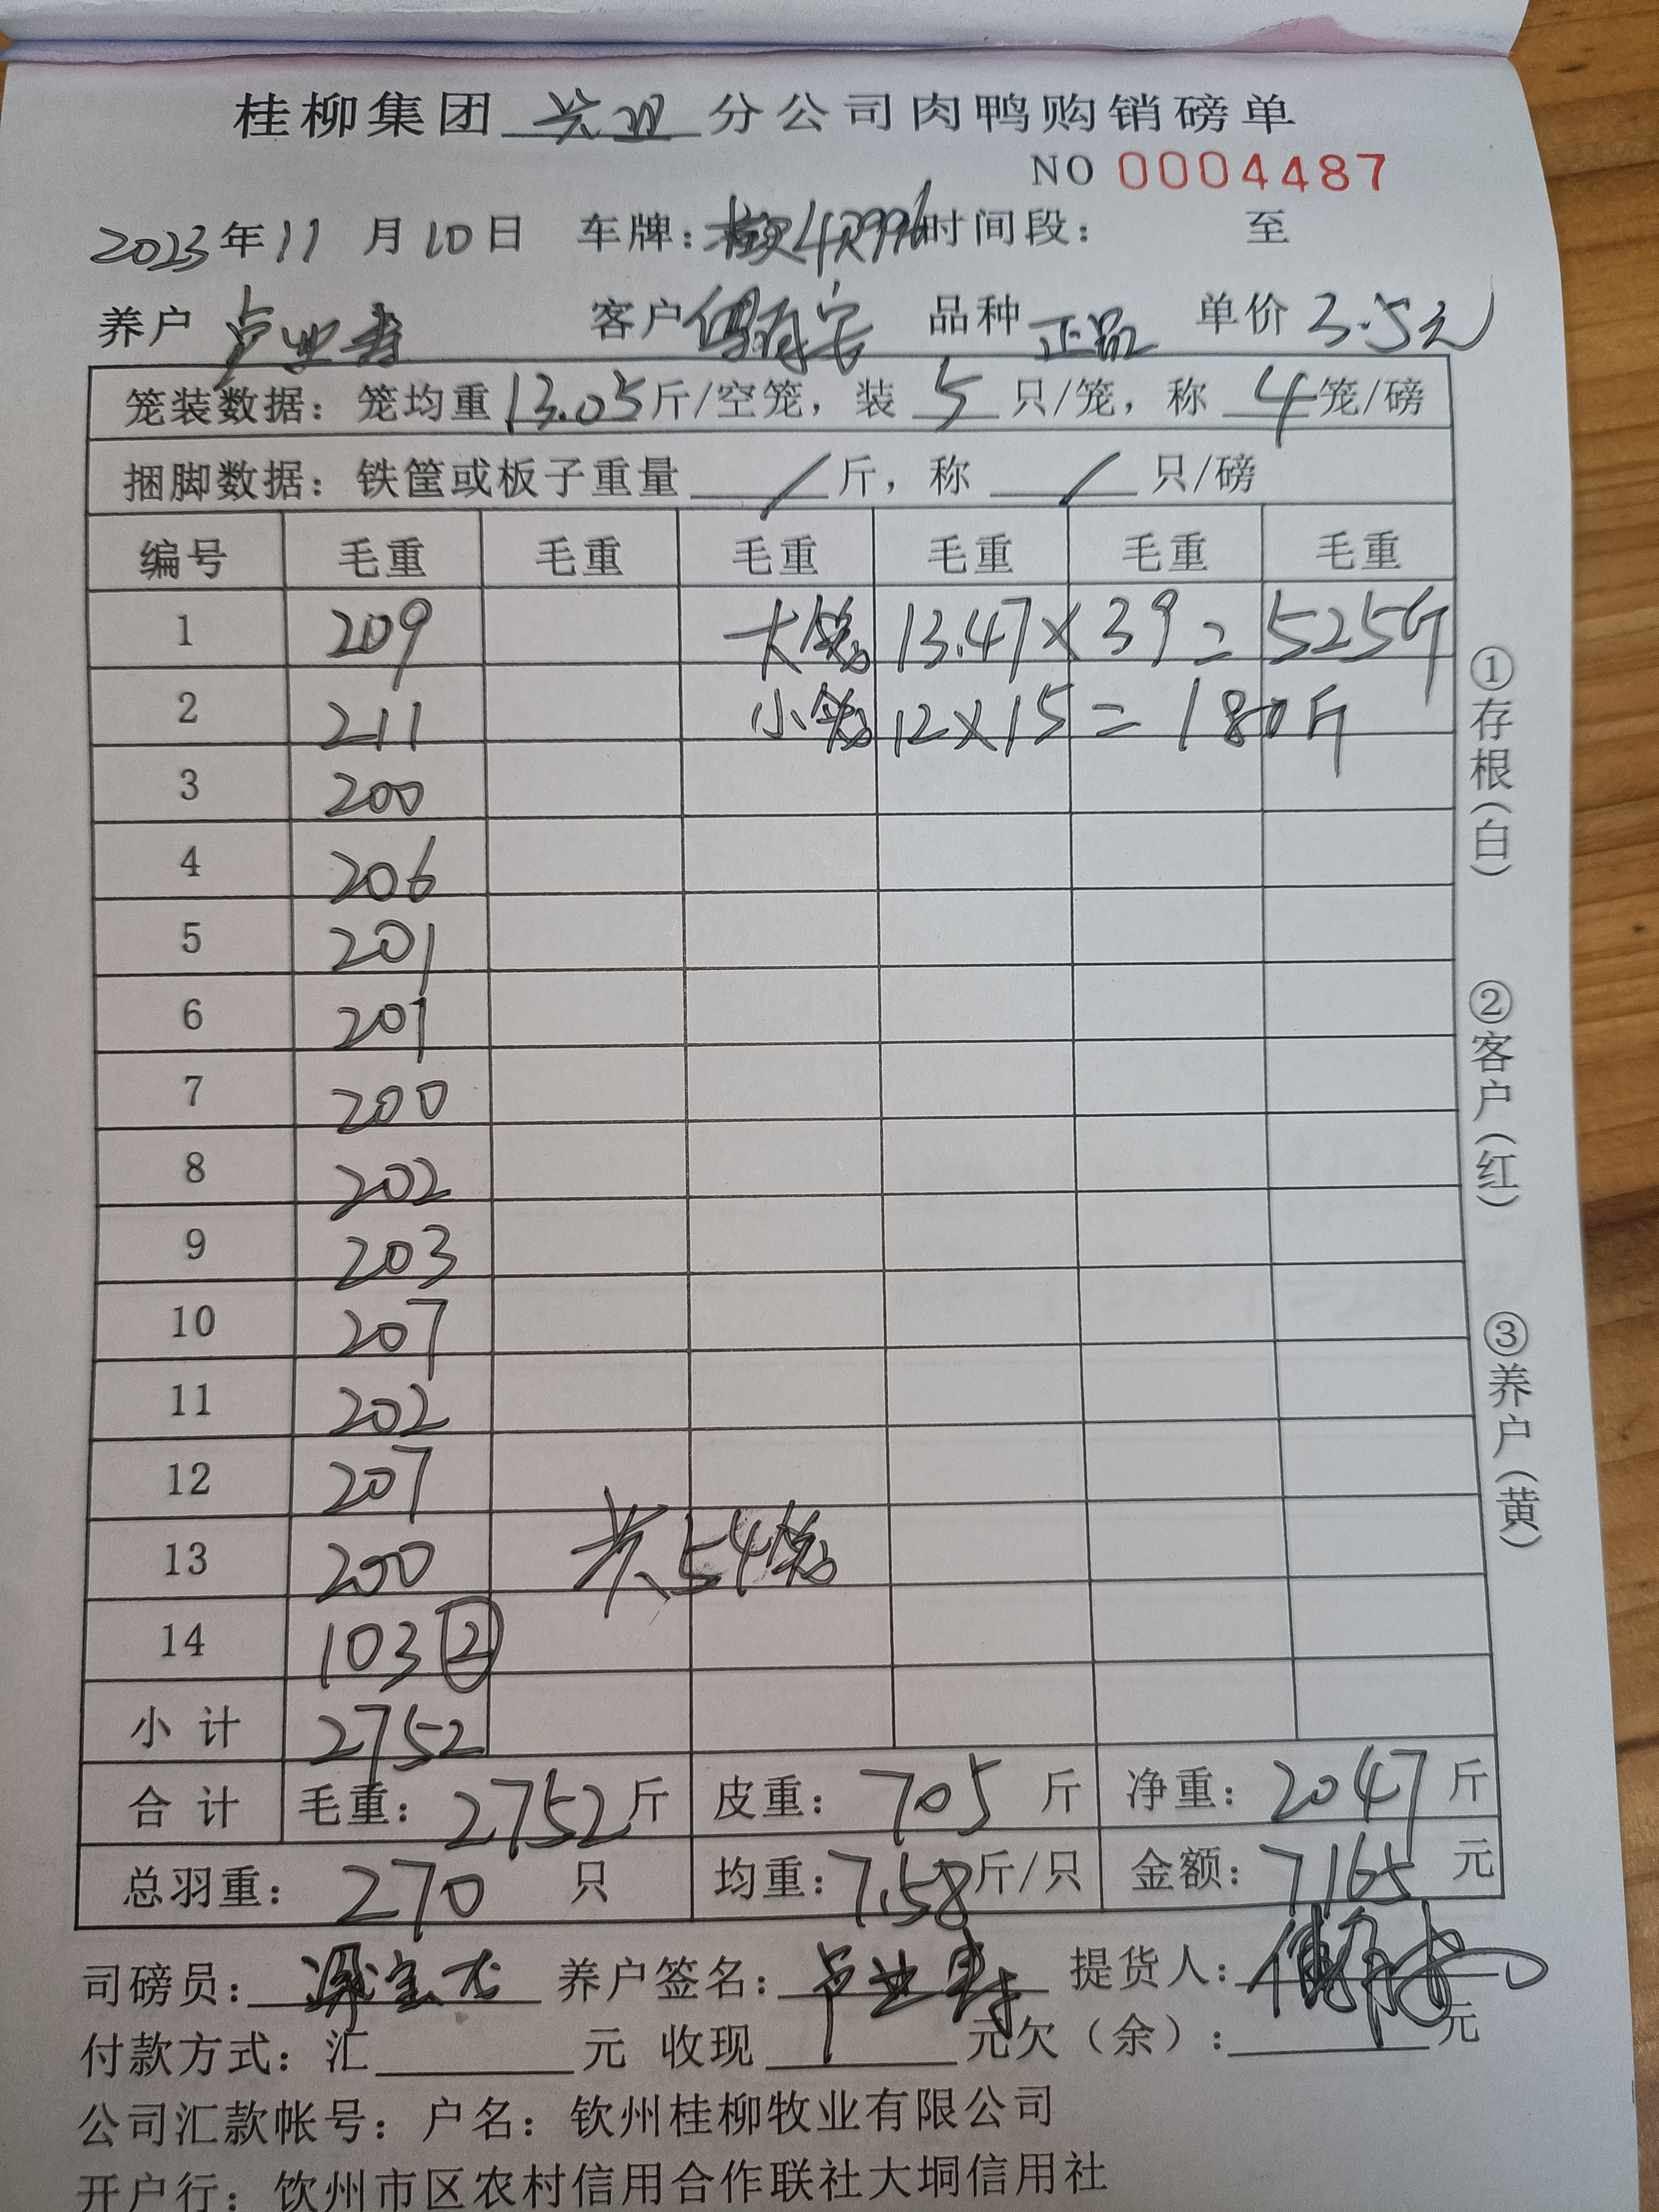 桂柳集团 兴业 分公司肉鸭购销磅单
NO 0004487
2023年11月10日 车牌: 时间段: 至
养户 卢业寿 客户 品种 正品 单价 3.5元
笼装数据: 笼均重 13.05 斤/空笼, 装 5 只/笼, 称 4 笼/磅
捆脚数据: 铁筐或板子重量 / 斤, 称 / 只/磅
编号 毛重 毛重 毛重 毛重 毛重 毛重
1 209 大笼 13.47×39=525斤
2 211 小笼 12×15=180斤
3 200
4 206
5 201
6 201
7 200
8 202
9 203
10 207
11 202
12 207
13 200 共54笼
14 103 ②
小计 2752
合计 毛重: 2752 斤 皮重: 705 斤 净重: 2047 斤
总羽重: 270 只 均重: 7.58 斤/只 金额: 7165 元
司磅员: 养户签名: 卢业寿 提货人:
付款方式: 汇 元 收现 元欠(余): 元
公司汇款帐号: 户名: 钦州桂柳牧业有限公司
开户行: 钦州市区农村信用合作联社大垌信用社
①存根(白)
②客户(红)
③养户(黄)